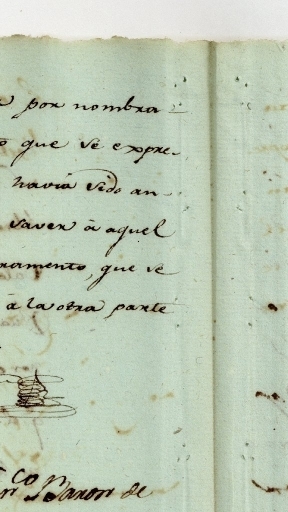 por nombra
que se expre-
havia sido an-
saver à aquel
ramento, que se
a la otra parte
co Baron de